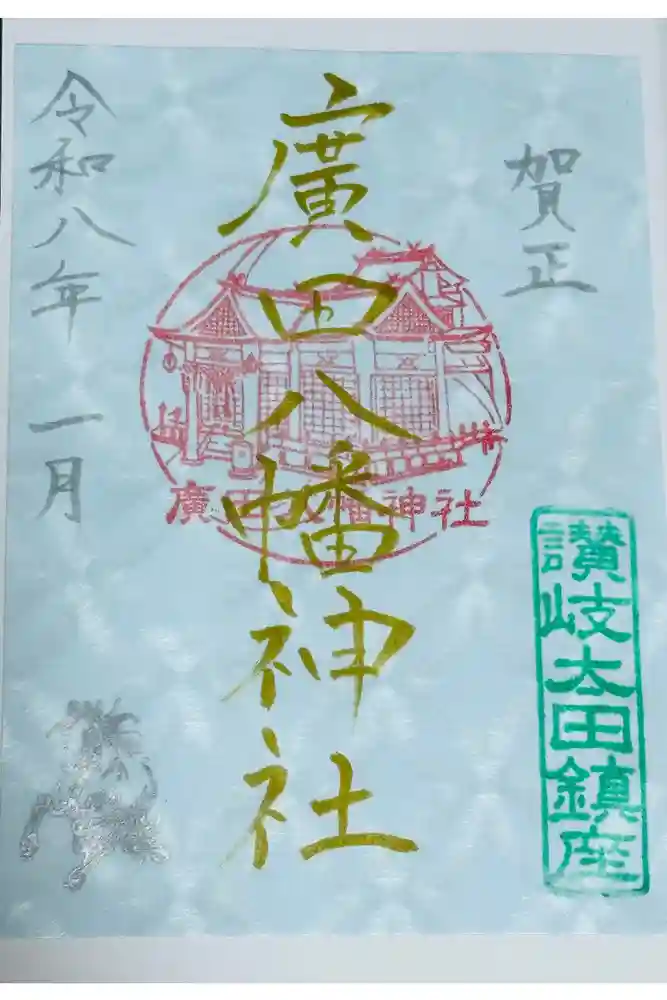 賀正
廣田八幡神社
廣田八幡神社
令和八年 一月
讃岐太田鎮座